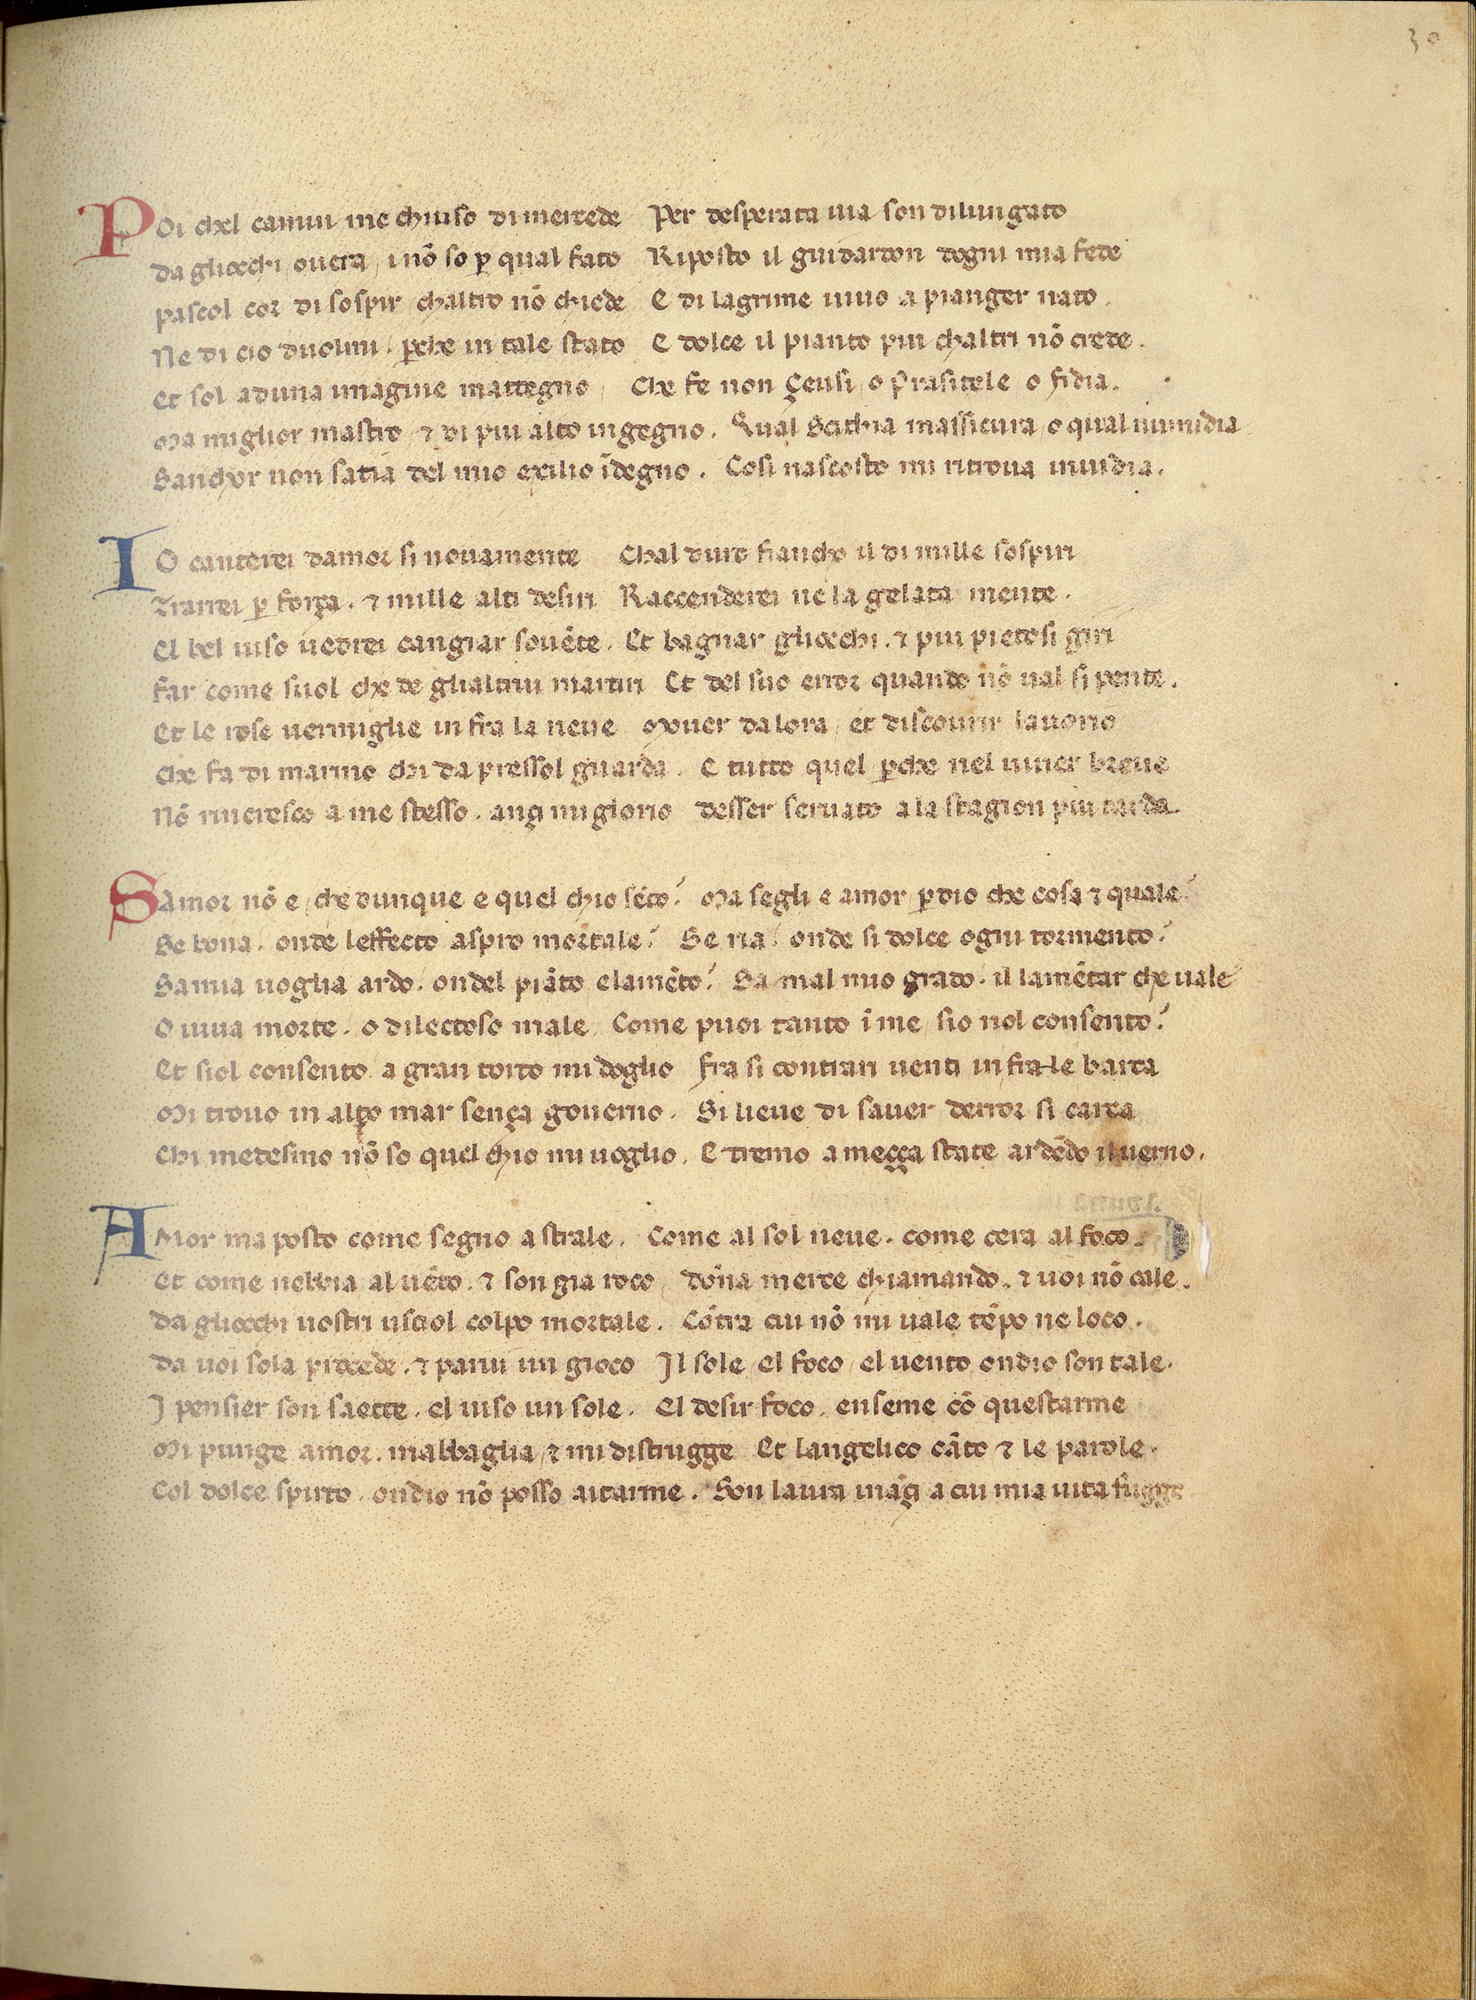 30
POi chel camin me chiuso di mercede Per desperata uia son dilungato
da gliocchi, ouera, i nõ so ꝑ qual fato Riposto il guidardon dogni mia fede
pascol cor di sospir chaltro nõ chiede E di lagrime uiuo a pianger nato.
Ne di cio duolmi, ꝑche in tale stato E dolce il pianto piu chaltri nõ crede.
Et sol aduna imagine mattegno, Che fe non çeusi, o prasitele o fidia.
Ma miglior mastro, ⁊ di piu alto ingegno. Qual Scithia massicura, o qual numidia
Sanchor non satia del mio exilio ĩdegno. Cosi nascosto mi ritroua inuidia.
IO canterei damor si nouamente Chal duro fiancho il di mille sospiri
Trarrei ꝑ força. ⁊ mille alti desiri Raccenderei ne la gelata mente.
El bel uiso uedrei cangiar souẽte. Et bagnar gliocchi. ⁊ piu pietosi giri
far come suol che de glialtrui martiri Et del suo error quando nõ ual si pente.
Et le rose uermiglie in fra la neue Mouer da lora, et discourir lauorio
Che fa di marmo chi da pressol guarda. E tutto quel ꝑche nel uiuer breue
Nõ rincresco a me stesso. ançi mi glorio desser seruato a la stagion piu tarda.
SAmor nõ e, che dunque e quel chio sẽto? Ma segli e amor ꝑ dio che cosa ⁊ quale?
Se bona. onde leffecto aspro mortale? Se ria. onde si dolce ogni tormento?
Samia uoglia ardo. ondel piãto e lamẽto? Sa mal mio grado. il lamẽtar che uale
O uiua morte. o dilectoso male. Come puoi tanto ĩ me, sio nol consento?
Et siol consento. a gran torto mi doglio fra si contrari uenti in frale barca
Mi trouo in alto mar sença gouerno. Si lieue di sauer derror si carca
Chi medesimo nõ so quel chio mi uoglio. E tremo a meçça state ardẽdo il uerno.
AMor ma posto come segno a strale. Come al sol neue. come cera al foco.
Et come nebbia al uẽto. ⁊ son gia roco, dõna merce chiamando. ⁊ uoi nõ cale.
Da gliocchi uostri uscíol colpo mortale. Cõtra cui nõ mi uale tẽpo ne loco.
Da uoi sola procede. ⁊ parui un gioco Il sole, el foco, el uento ondio son tale.
I pensier son saette. el uiso un sole. El desir foco. enseme cõ questarme
Mi punge amor. mabbaglia, ⁊ mi distrugge Et langelico cãto ⁊ le parole.
Col dolce spirto. ondio nõ posso aitarme. Son laura inãçi a cui mia uita fugge